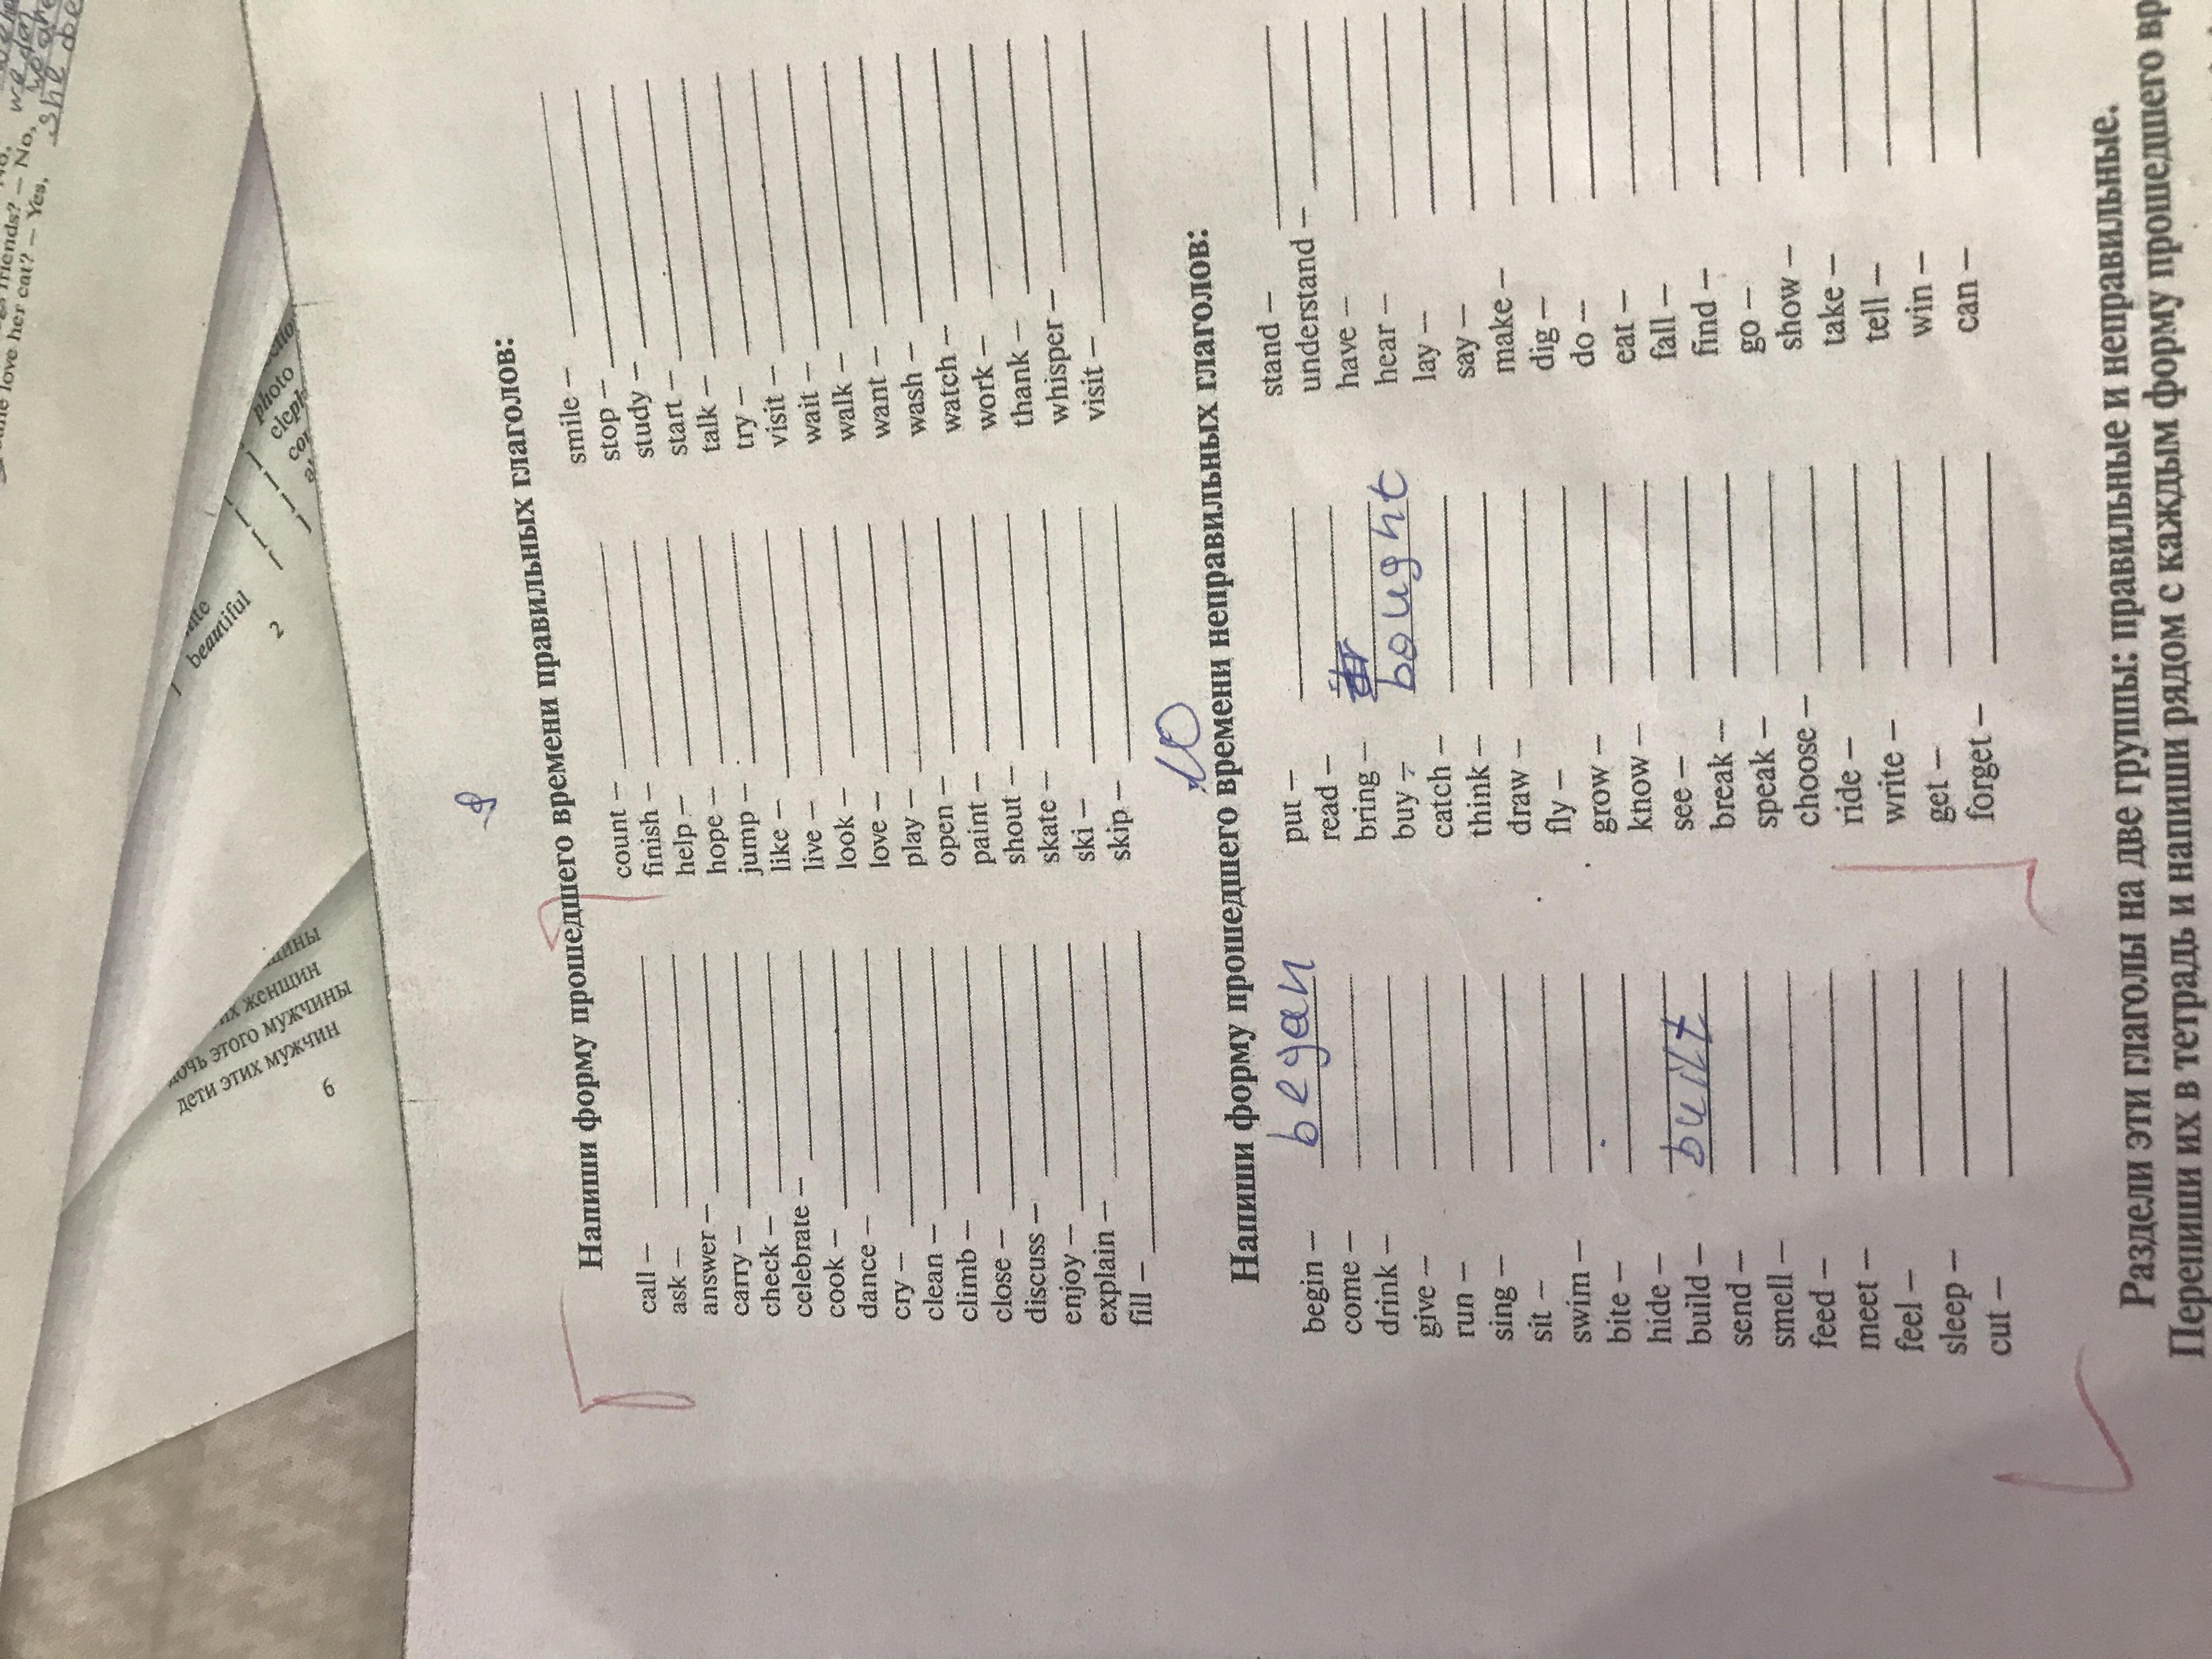 we
she
friends? – No,
love her cat? – Yes,
photo
beautiful
2
их женщин
дочь этого мужчины
дети этих мужчин
6
9
Напиши форму прошедшего времени правильных глаголов:
call –
ask –
answer –
carry –
check –
celebrate –
cook –
dance –
cry –
clean –
climb –
close –
discuss –
enjoy –
explain –
fill –
count –
finish –
help –
hope –
jump –
like –
live –
look –
love –
play –
open –
paint –
shout –
skate –
ski –
skip –
smile –
stop –
study –
start –
talk –
try –
visit –
wait –
walk –
want –
wash –
watch –
work –
thank –
whisper –
visit –
10
Напиши форму прошедшего времени неправильных глаголов:
begin – began
come –
drink –
give –
run –
sing –
sit –
swim –
bite –
hide –
build – built
send –
smell –
feed –
meet –
feel –
sleep –
cut –
put –
read –
bring –
buy – bought
catch –
think –
draw –
fly –
grow –
know –
see –
break –
speak –
choose –
ride –
write –
get –
forget –
stand –
understand –
have –
hear –
lay –
say –
make –
dig –
do –
eat –
fall –
find –
go –
show –
take –
tell –
win –
can –
Раздели эти глаголы на две группы: правильные и неправильные.
Перепиши их в тетрадь и напиши рядом с каждым форму прошедшего вр